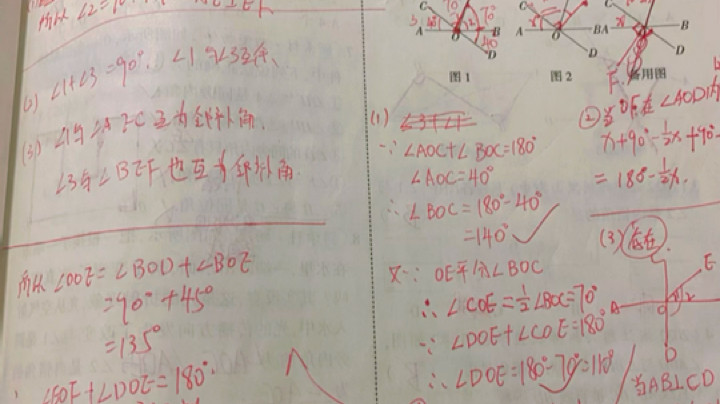 (2) ∠1+∠3=90°. ∠1与∠3互余.
(3) ∠1与∠AEC互为邻补角.
∠3与∠BEF也互为邻补角.
所以∠DOE=∠BOD+∠BOE
=90°+45°
=135°
∠EOF+∠DOE=180°.
图1
图2
备用图
(1)
∵ ∠AOC+∠BOC=180°
∠AOC=40°
∴ ∠BOC=180°-40°
=140°
又∵ OE平分∠BOC
∴ ∠COE=½∠BOC=70°
∵ ∠DOE+∠COE=180°
∴ ∠DOE=180°-70°=110°
② 当OF在∠AOD内
x+90°-½x+90°
=180-½x.
(3) 存在.
当AB⊥CD